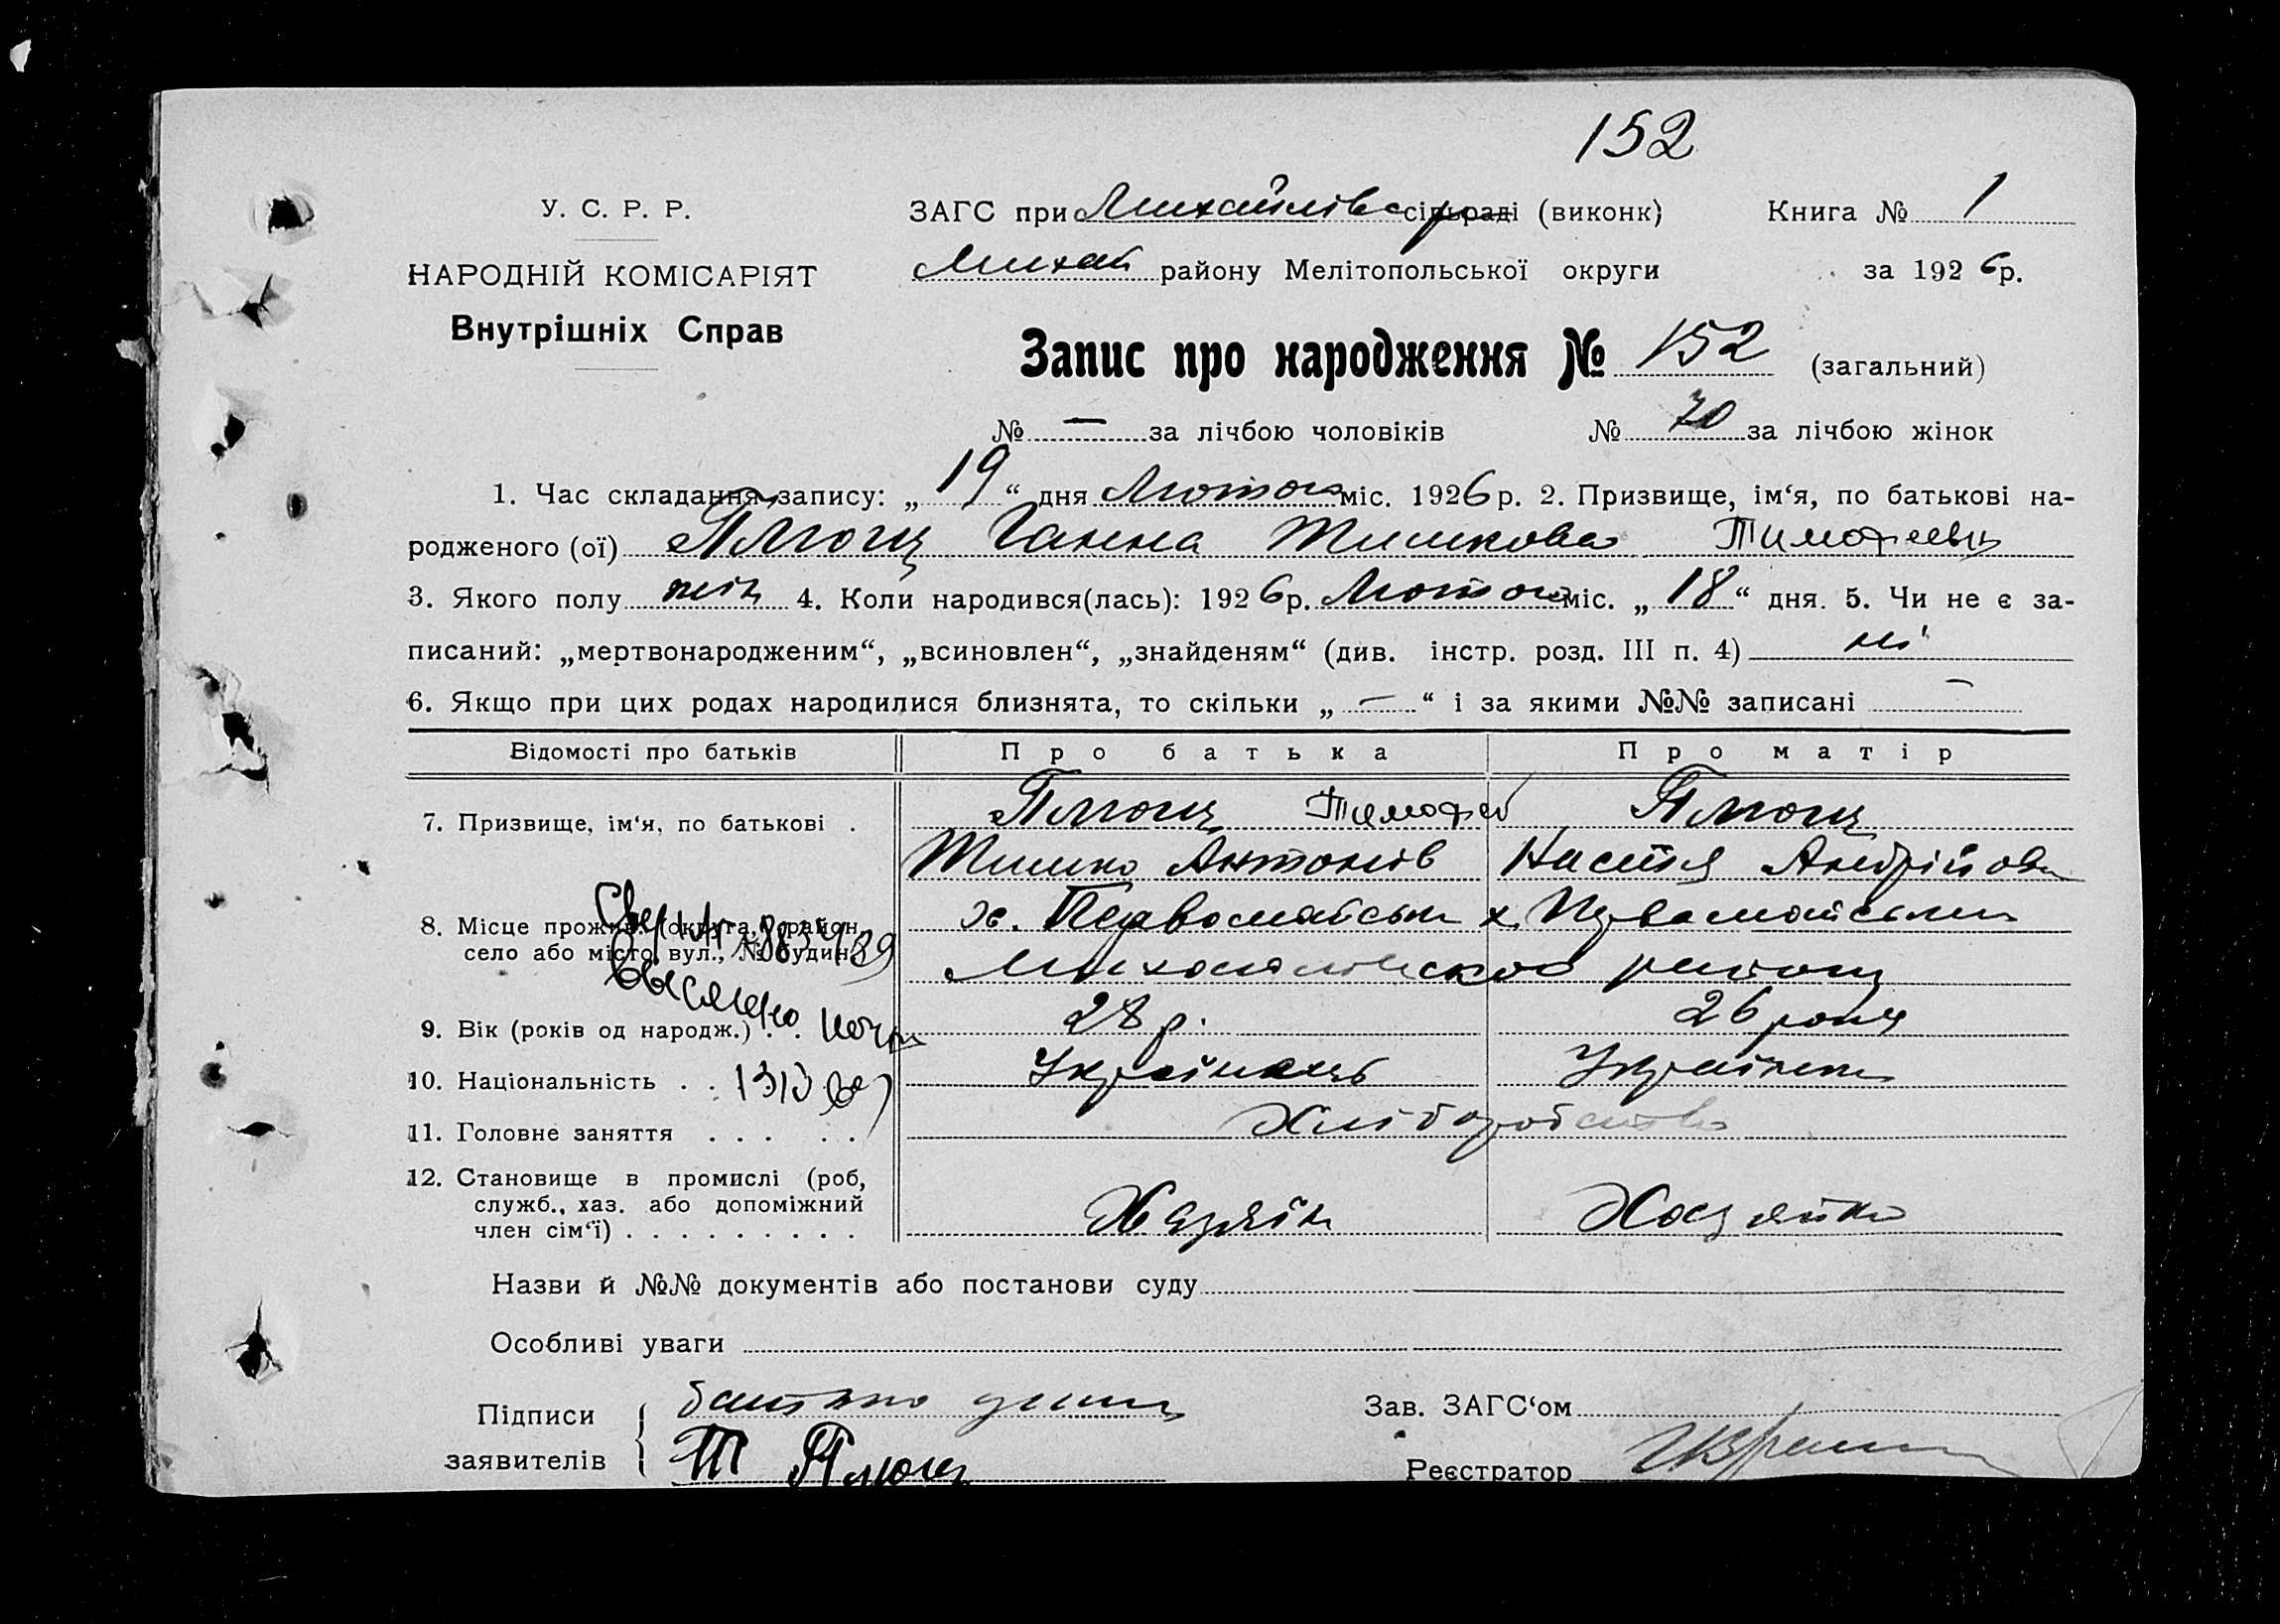 152
У. С. Р. Р.
НАРОДНІЙ КОМІСАРІЯТ
Внутрішніх Справ
ЗАГС при Михайлівс сільраді (виконк) Книга № 1
Михай району Мелітопольської округи за 1926 р.
Запис про народження № 152 (загальний)
№ — за лічбою чоловіків № 70 за лічбою жінок
1. Час складання запису: „ 19 “ дня Лютого міс. 1926 р. 2. Призвище, ім‘я, по батькові на-
родженого (ої) Плющ Ганна Тимкова Тимофеевн
3. Якого полу жін 4. Коли народився(лась): 1926 р. Лютого міс. „ 18 “ дня. 5. Чи не є за-
писаний: „мертвонародженим“, „всиновлен“, „знайденям“ (див. інстр. розд. III п. 4) ні
6. Якщо при цих родах народилися близнята, то скільки „ — “ і за якими №№ записані —
Відомості про батьків Про батька Про матір
7. Призвище, ім‘я, по батькові . Плющ Тимофей Плющ
Тимко Антонів Настя Андрійова
8. Місце прожив. (округа, район, х. Первомайськ х. Первомайськ
село або місто, вул., № будин.) району
9. Вік (років од народж.) . . 28 р. 26 років
10. Національність . . Українець Українка
11. Головне заняття . . . . . Хліборобство
12. Становище в промислі (роб,
служб., хаз. або допоміжний
член сім‘ї) . . . . . . . . . Хазяїн Хозяйка
Назви й №№ документів або постанови суду
Особливі уваги
Підписи батько Зав. ЗАГС‘ом
заявителів Т Плющ Реєстратор